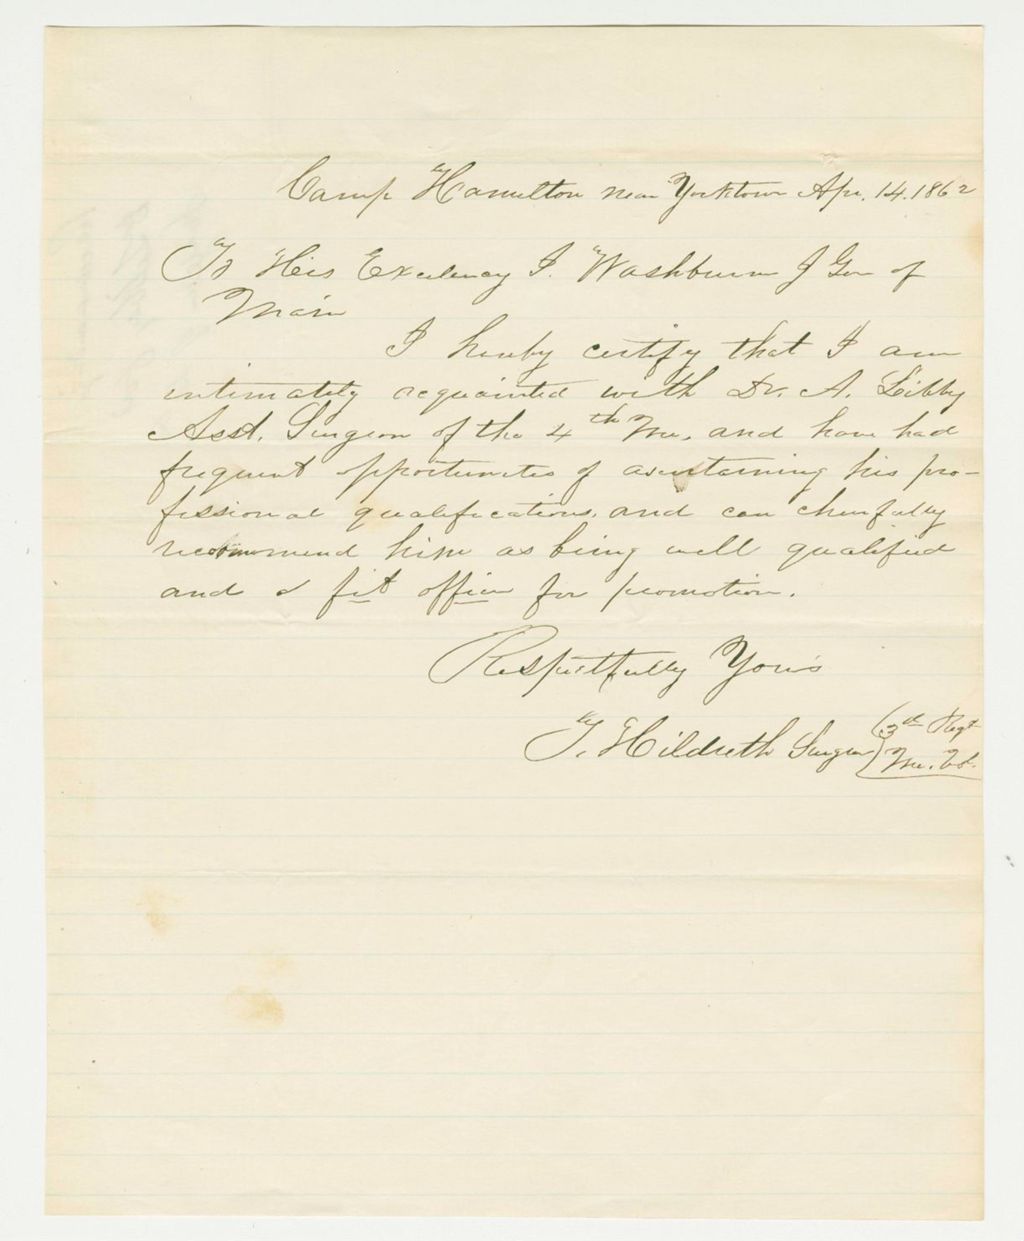 Camp Hamilton near Yorktown Apr. 14. 1862
To His Excelency I. Washburn J Gov of
Main
I hereby certify that I am
intimately acquainted with Dr. A. Libby
Asst. Surgeon of the 4th Me, and have had
frequent opportunities of ascertaining his pro-
fessional qualifications, and can cheerfully
recommend him as being well qualified
and a fit officer for promotion.
Respectfully Yours
T. Hildreth Surgeon
3d Regt
Me. Vol.